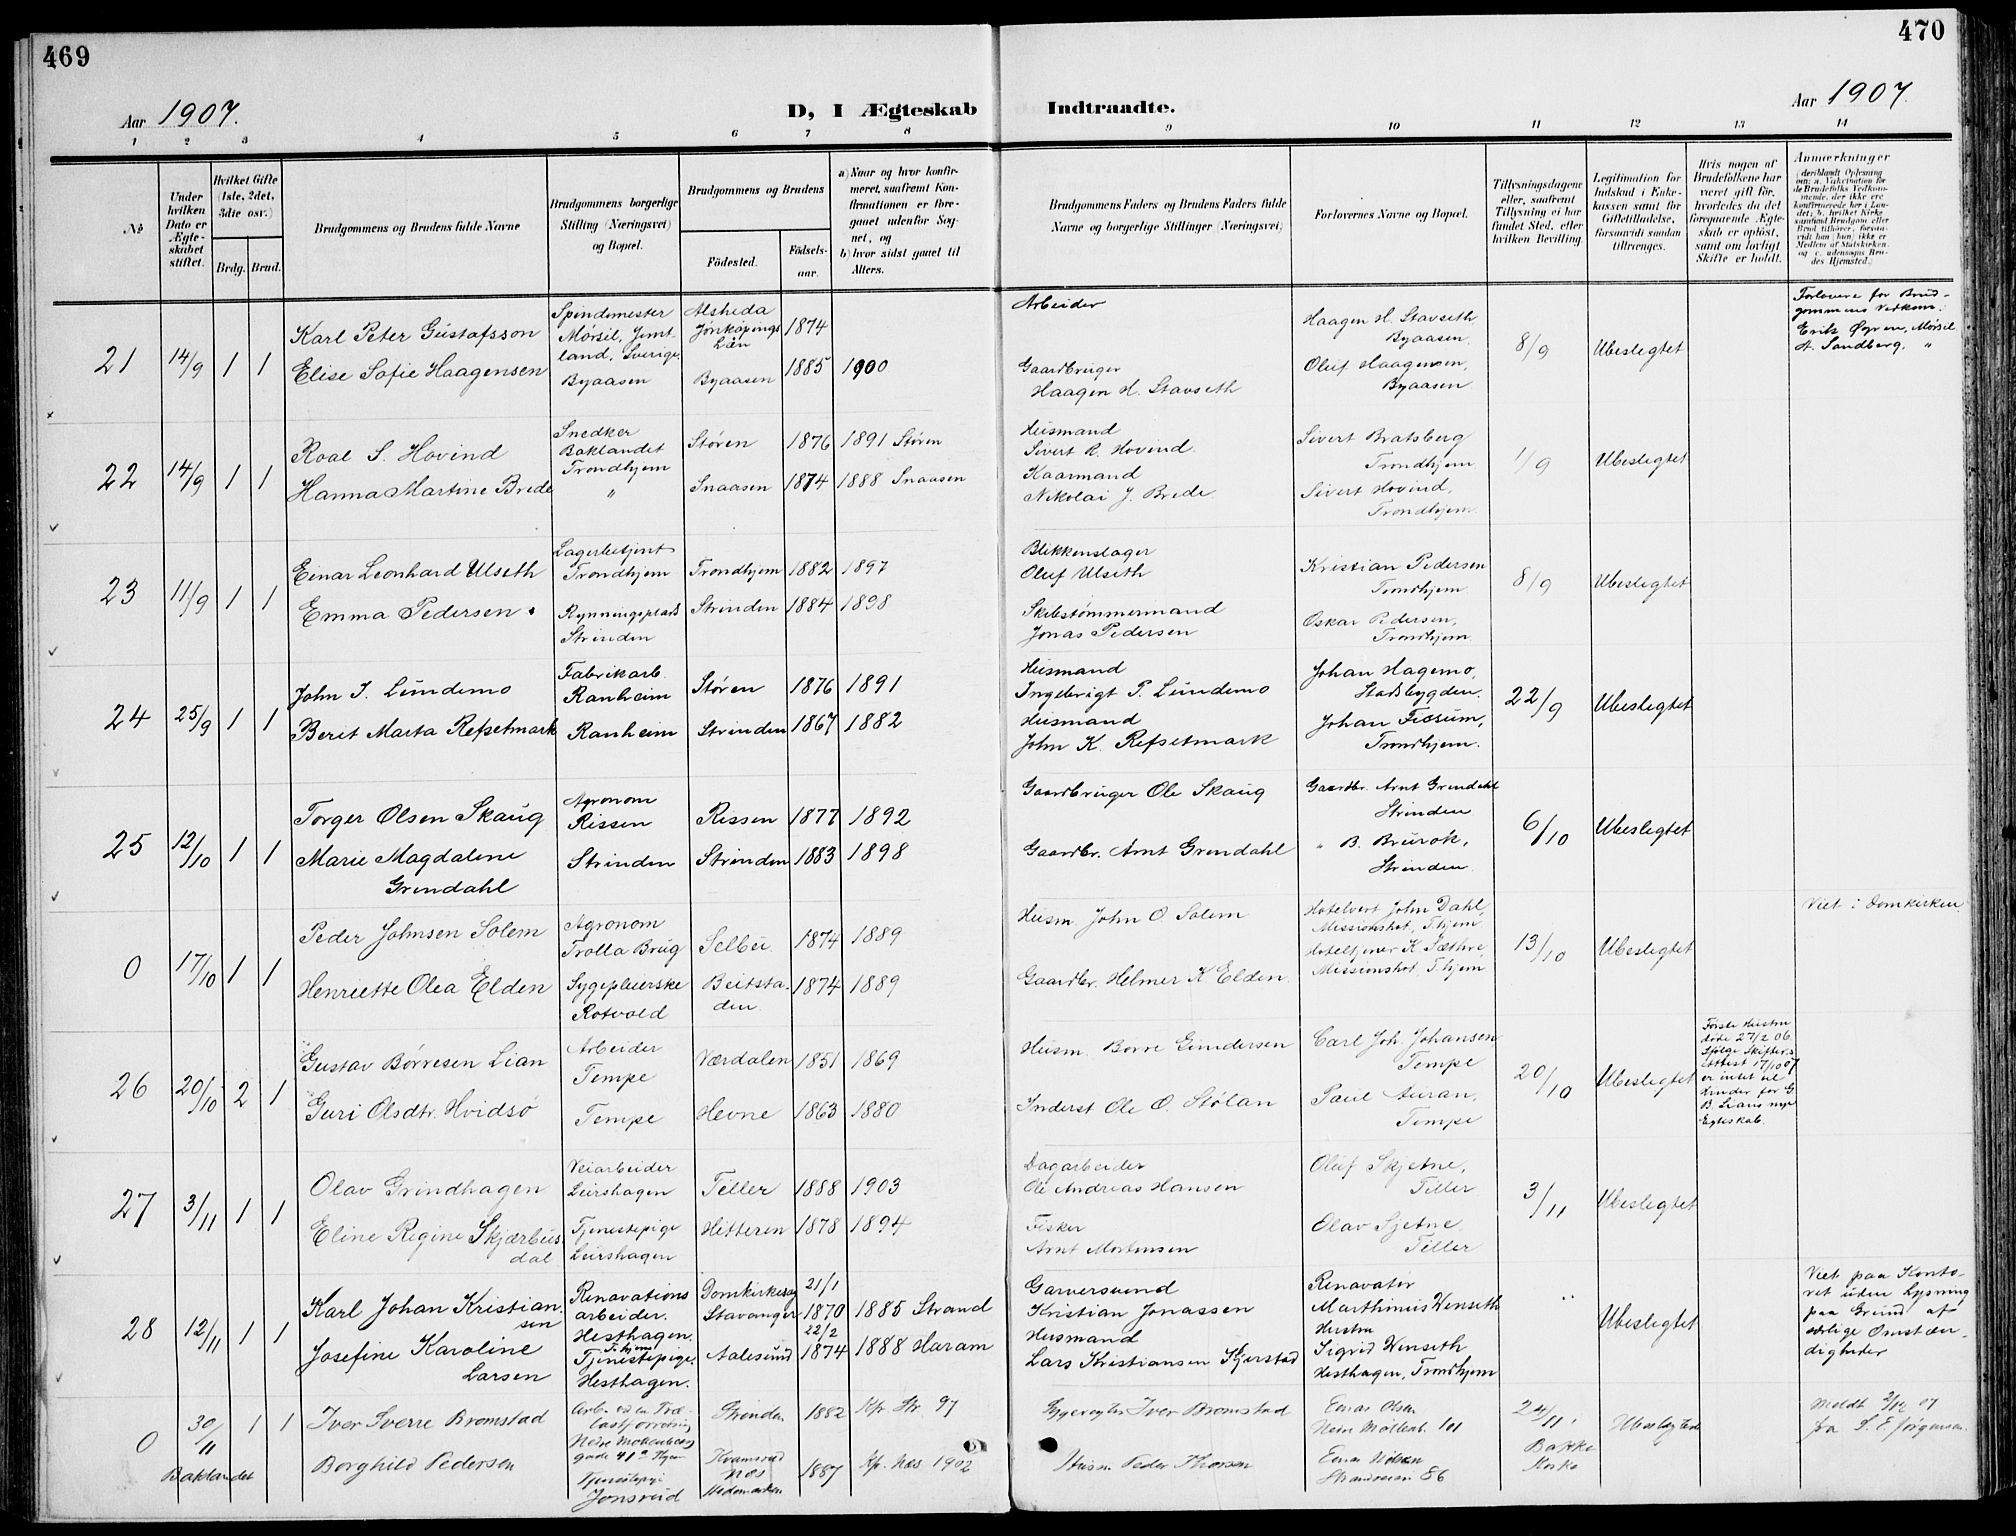 469
470
Aar 1907.
D, I Ægteskab Indtraadte.
Aar 1907.
1 2 3 4 5 6 7 8 9 10 11 12 13 14
№
Under hvilken Dato er Ægteskabet stiftet.
Hvilket Gifte (1ste, 2det, 3die osv.)
Brdg. Brud.
Brudgommens og Brudens fulde Navne
Brudgommens borgerlige Stilling (Næringsvei) og Bopæl.
Brudgommens og Brudens
Fødested.
Fødselsaar.
a) Naar og hvor konfirmeret, saafremt Konfirmationen er foregaaet udenfor Sognet, og
b) hvor sidst gaaet til Alters.
Brudgommens Faders og Brudens Faders fulde Navne og borgerlige Stillinger (Næringsvei)
Forlovernes Navne og Bopæl.
Tillysningsdagene eller, saafremt Tillysning ei har fundet Sted, efter hvilken Bevilling.
Legitimation for Indskud i Enkekassen samt for Giftetilladelse, forsaavidt saadan tiltrænges.
Hvis nogen af Brudefolkene har været gift før, hvorledes da det foregaaende Ægteskab er opløst, samt om lovligt Skifte er holdt.
Anmerkninger
(deriblandt Oplysning om: a. Vakcination for de Brudefolks Vedkommende, der ikke ere konfirmerede her i Landet; b. hvilket Kirkesamfund Brudgom eller Brud tilhører, forsaavidt han (hun) ikke er Medlem af Statskirken, og c. udensogns Brudes Hjemsted.)
21 14/9 1 1
Karl Peter Gustafsson
Elise Sofie Haagensen
Spindemester
Mørsil, Jemt-
land, Sverige.
Byaasen
Alsheda
Jønkøpings
Län
Byaasen
1874
1885 1900
Arbeider
Gaardbruger
Haagen H. Stavseth
Haagen H. Stavseth,
Byaasen.
Oluf Haagensen,
Byaasen
8/9 Ubeslegtet
Forlovere for Brud-
gommens Vedkom:
Erik Øyen, Mørsil
A. Sandberg, "
22 14/9 1 1
Roal S. Hovind
Hanna Martine Brede
Snedker
Baklandet
Trondhjem
"
Støren 1876 1891 Støren
Snaasen 1874 1888 Snaasen
Husmand
Sivert R. Hovind.
Kaarmand
Nikolai J. Brede
Sivert Bratsberg
Trondhjem
Sivert Hovind,
Trondhjem.
1/9 Ubeslegtet
23 11/9 1 1
Einar Leonhard Ulseth
Emma Pedersen
Lagerbetjent
Trondhjem
Rynningsplads
Strinden
Trondhjem 1882 1897
Strinden 1884 1898
Blikkenslager
Oluf Ulseth
Skibstømmermand
Jonas Pedersen
Kristian Pedersen
Trondhjem
Oskar Pedersen,
Trondhjem.
8/9 Ubeslegtet
24 25/9 1 1
John I. Lundemo
Berit Marta Refsetmark
Fabrikarb.
Ranheim
Ranheim
Støren 1876 1891
Strinden 1867 1882
Husmand
Ingebrigt P. Lundemo
Husmand
John K. Refsetmark
Johan Hagemo,
Stadsbygden.
Johan Fissum,
Trondhjem.
22/9 Ubeslegtet
25 12/10 1 1
Torger Olsen Skaug
Marie Magdalene
Grendahl
Agronom
Rissen
Strinden
Rissen 1877 1892
Strinden 1883 1898
Gaardbruger Ole Skaug
Gaardbr. Arnt Grendahl
Gaardbr. Arnt Grendahl
Strinden
" B. Brurok,
Strinden.
6/10 Ubeslegtet
0 17/10 1 1
Peder Johnsen Solem
Henriette Olea Elden
Agronom
Trolla Brug
Sygepleierske
Rotvold
Selbu 1874 1889
Beitsta-
den. 1874 1889
Husm John O Solem
Gaardbr. Helmer K Elden.
Hotelvert John Dahl,
Missionshot, T.hjem
Hoteltjener K. Sæthre,
Missionshot, T.hjem
13/10 Ubeslegtet
Viet i Domkirken.
26 20/10 2 1
Gustav Børresen Lian
Guri Olsdtr. Hvidsø
Arbeider
Tempe
Tempe
Værdalen 1851 1869
Hevne 1863 1880
Husm. Børre Gundersen
Inderst Ole O. Stølan
Carl Joh. Johansen
Tempe
Paul Auran,
Tempe
20/10 Ubeslegtet
Første Hustru
døde 27/2 06.
Ifølge Skifter-
attest 17/10 07
er intet til
Hinder for G.
B. Lians nye
Egteskab.
27 3/11 1 1
Olav Grindhagen
Eline Regine Skjærbus-
dal
Veiarbeider
Leirshagen
Tjenestepige
Leirshagen
Tiller 1888 1903
Hitteren 1878 1894
Dagarbeider
Ole Andreas Hansen
Fisker
Arnt Mortensen
Oluf Skjetne,
Tiller
Olav Sjetne,
Tiller
3/11 Ubeslegtet
28 12/11 1 1
Karl Johan Kristian-
sen
Josefine Karoline
Larsen
Renovations
arbeider.
Hesthagen.
T.hjem
Tjenestepige.
Hesthagen.
Domkirkesog
Stavanger
Aalesund
21/1
1870 1885 Strand
22/2
1874 1888 Haram
Garversvend
Kristian Jonassen
Husmand
Lars Kristiansen Kjerstad
Renovatør
Marthinus Wenseth
Hustru
Sigrid Wenseth
Hesthagen, Trondhjem
" Ubeslegtet
Viet paa Konto-
ret uden Lysning
paa Grund af
særlige Omstæn-
digheder
0 30/11 1 1
Baklandet
Iver Sverre Bromstad
Borghild Pedersen
Arb. ved en Træ-
lastforretning
Nedre Møllenberg
gade 41a Thjem
Tjenestepi
Jonsvud
Strinden 1882 Kfr. Str. 97
Kvamsrud
Næs
Hedemarken 1887 Kfr. Næs 1902
Iver Bromstad
Husm Peder Thorsen
Einar Olsen
Nedre Møllenb. 101
Einar Nilsen
Strandveien 86
24/11
Bakke
Kirke
Ubeslegtede
Meldt 3/12 07
fra S. E. Jørgensen